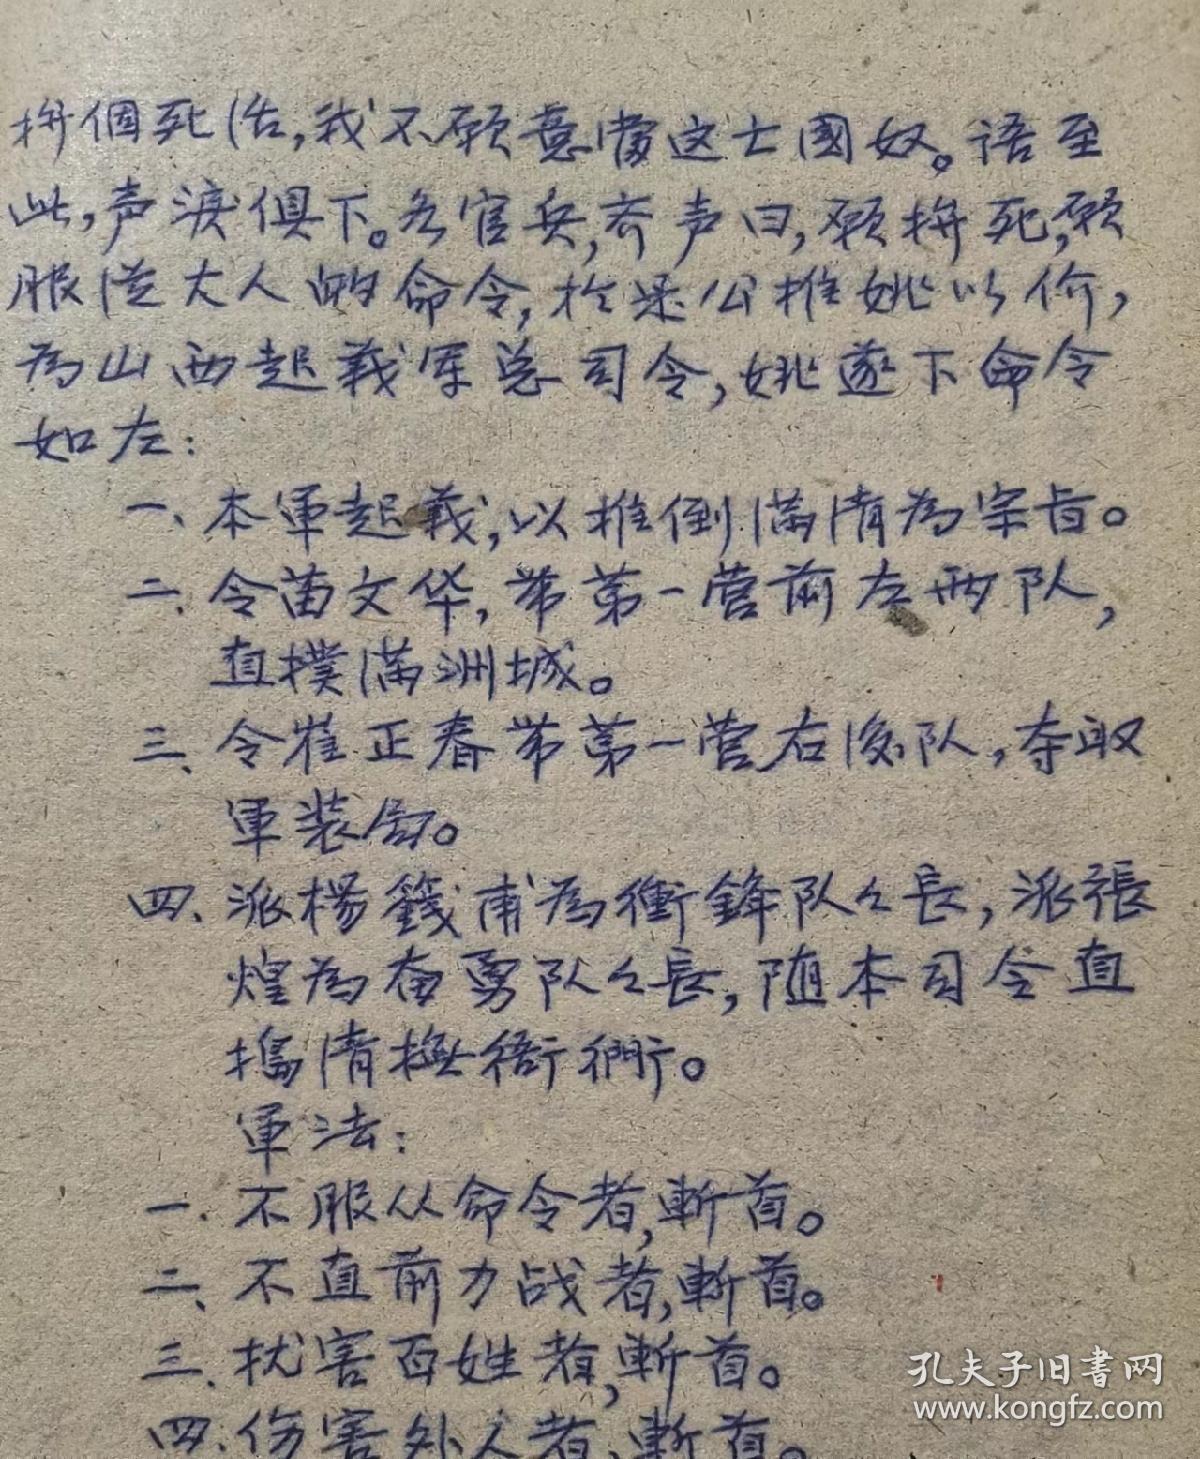 拚個死活,我不願意當这亡國奴。语至
此,声淚俱下。各官兵,齐声曰,願拚死,願
服從大人的命令,於是公推姚以价,
為山西起義军总司令,姚遂下命令
如左:
一、本軍起義,以推倒滿清為宗旨。
二、令苗文华,带第一营前左两队,
直撲滿洲城。
三、令崔正春带第一营右後队,夺取
軍装局。
四、派楊籛甫為衝鋒队々長,派張
煌為奋勇队々長,随本司令直
搗清撫衙門。
軍法:
一、不服从命令者,斬首。
二、不直前力战者,斬首。
三、扰害百姓者,斬首。
四、伤害外人者,斬首。
孔夫子旧书网
www.kongfz.com